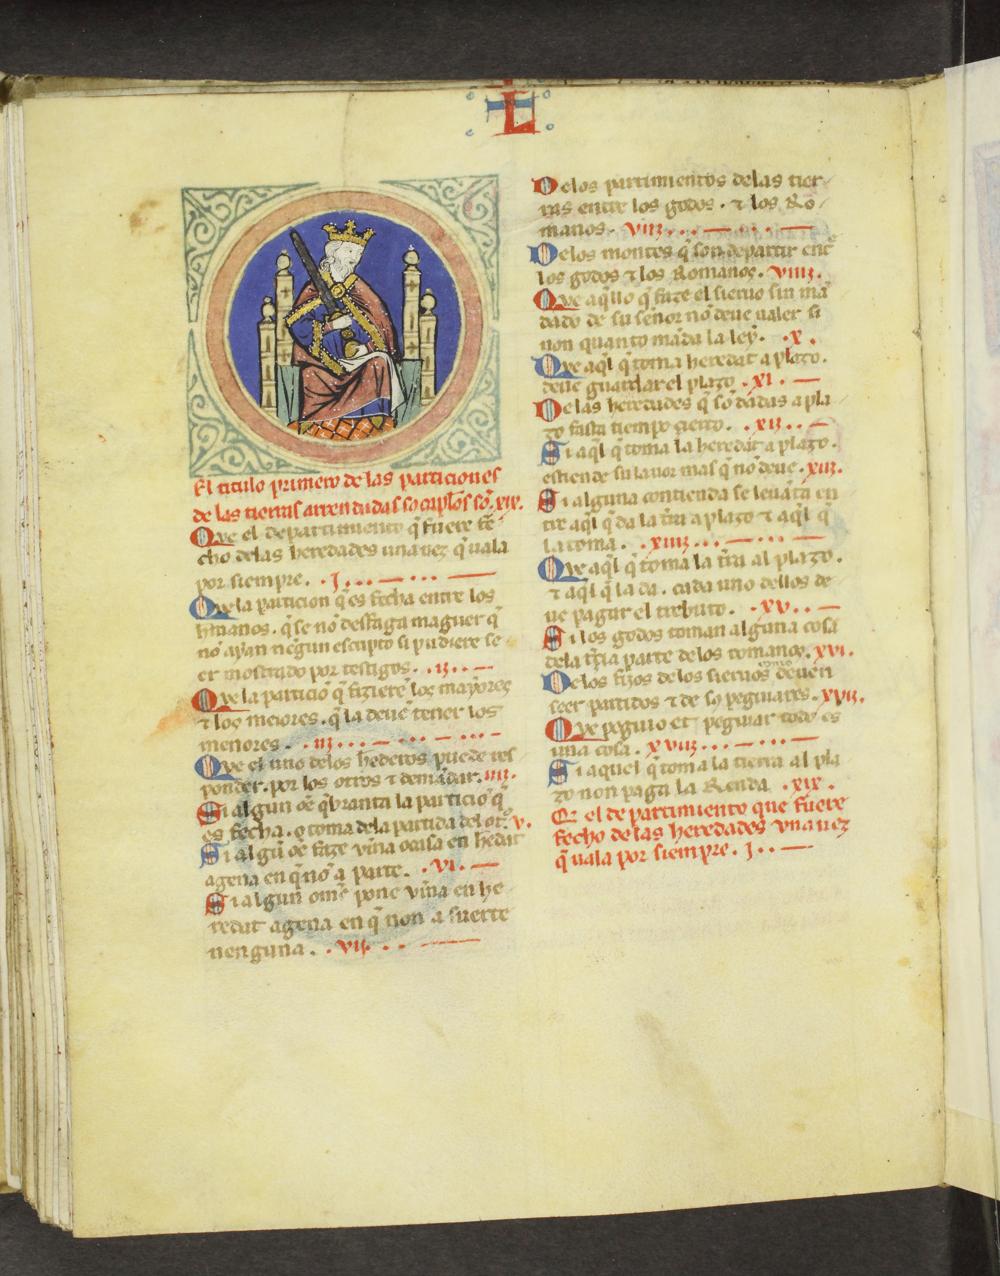 L
El titulo primero de las particiones
de las tierras arrendadas so capl̃os sõ .xix.
Que el departimiento q̃ fuere fe
cho delas heredades una uez q̃ uala
por siempre. .j.
Que la particion q̃ es fecha entre los
h̃manos. q̃ se no desfaga maguer q̃
nõ ayan negun escripto si pudiere se
er mostrado por testigos. .ij.
Que la particiõ q̃ fiziere los mayores
⁊ los meiores. q̃ la deuẽ tener los
menores. .iij.
Que el uno delos hederos puede res
ponder. por los otros ⁊ demãdar. iiij.
Si algun oẽ q̃branta la particiõ q̃
es fecha. o toma dela partida del otr̃. v.
Si algũ oẽ faze viña o casa en hedat
agena en q̃ nõ a parte. .vi.
Si algun omẽ pone viña en he
redat agena en q̃ non a suerte
nenguna. .vij.
Delos partimientos delas tier
ras entre los godos. ⁊ los Ro
manos. viij.
Delos montes q̃ son departir entr̃
los godos ⁊ los Romanos. viiij.
Que aq̃llo q̃ faze el sieruo sin mã
dado de su señor nõ deue ualer si
non quanto mãda la ley. .x.
Que aq̃l q̃ toma heredat a plazo.
deue guardar el plazo .xi.
Delas heredades q̃ sõ dadas a pla
zo fasta tiempo çierto. .xij.
Si aq̃l q̃ toma la heredat a plazo.
estiende su lauor mas q̃ nõ deue. xiij.
Si alguna contienda se leuãta en
tre aq̃l q̃ da la tr̃ra a plazo ⁊ aq̃l q̃
la toma. .xiiij.
Que aq̃l q̃ toma la tr̃ra al plazo.
⁊ aq̃l q̃ la da. cada uno dellos de
ue pagar el trebuto. .xv.
Si los godos toman alguna cosa
dela tr̃ia parte de los romanos. xvi.
Delos fijos de los sieruos como deuen
seer partidos ⁊ de so peguiares. xvij.
Que peguio et peguiar todo es
una cosa. xviij.
Si aquel q̃ toma la tierra al pla
zo non paga la Renda .xix.
Q̃ el departimiento que fuere
fecho de las heredades vna uez
q̃ uala por siempre. j.